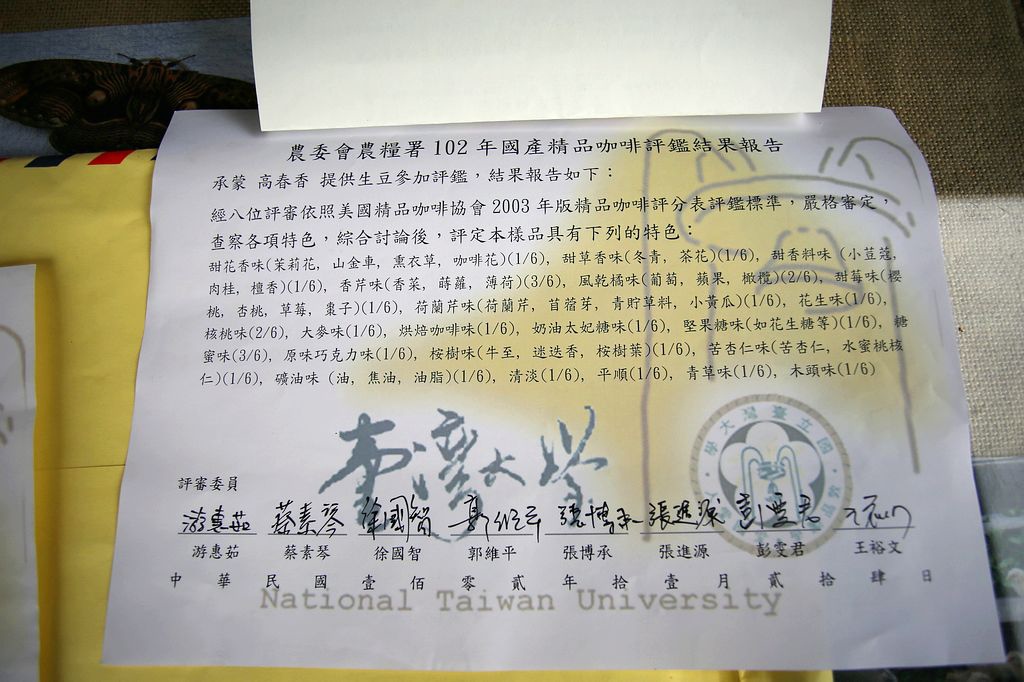 農委會農糧署 102 年國產精品咖啡評鑑結果報告
承蒙 高春香 提供生豆參加評鑑，結果報告如下：
經八位評審依照美國精品咖啡協會 2003 年版精品咖啡評分表評鑑標準，嚴格審定，
查察各項特色，綜合討論後，評定本樣品具有下列的特色：
甜花香味(茉莉花, 山金車, 熏衣草, 咖啡花)(1/6), 甜草香味(冬青, 茶花)(1/6), 甜香料味 (小荳蔻,
肉桂, 檀香)(1/6), 香芹味(香菜, 蒔蘿, 薄荷)(3/6), 風乾橘味(葡萄, 蘋果, 橄欖)(2/6), 甜莓味(櫻
桃, 杏桃, 草莓, 棗子)(1/6), 荷蘭芹味(荷蘭芹, 苜蓿芽, 青貯草料, 小黃瓜)(1/6), 花生味(1/6),
核桃味(2/6), 大麥味(1/6), 烘焙咖啡味(1/6), 奶油太妃糖味(1/6), 堅果糖味(如花生糖等)(1/6), 糖
蜜味(3/6), 原味巧克力味(1/6), 桉樹味(牛至, 迷迭香, 桉樹葉)(1/6), 苦杏仁味(苦杏仁, 水蜜桃核
仁)(1/6), 礦油味 (油, 焦油, 油脂)(1/6), 清淡(1/6), 平順(1/6), 青草味(1/6), 木頭味(1/6)
臺灣大學
國立臺灣大學
評審委員
游惠茹 蔡素琴 徐國智 郭維平 張博承 張進源 彭雯君
游惠茹 蔡素琴 徐國智 郭維平 張博承 張進源 彭雯君 王裕文
中華民國壹佰零貳年拾壹月貳拾肆日
National Taiwan University